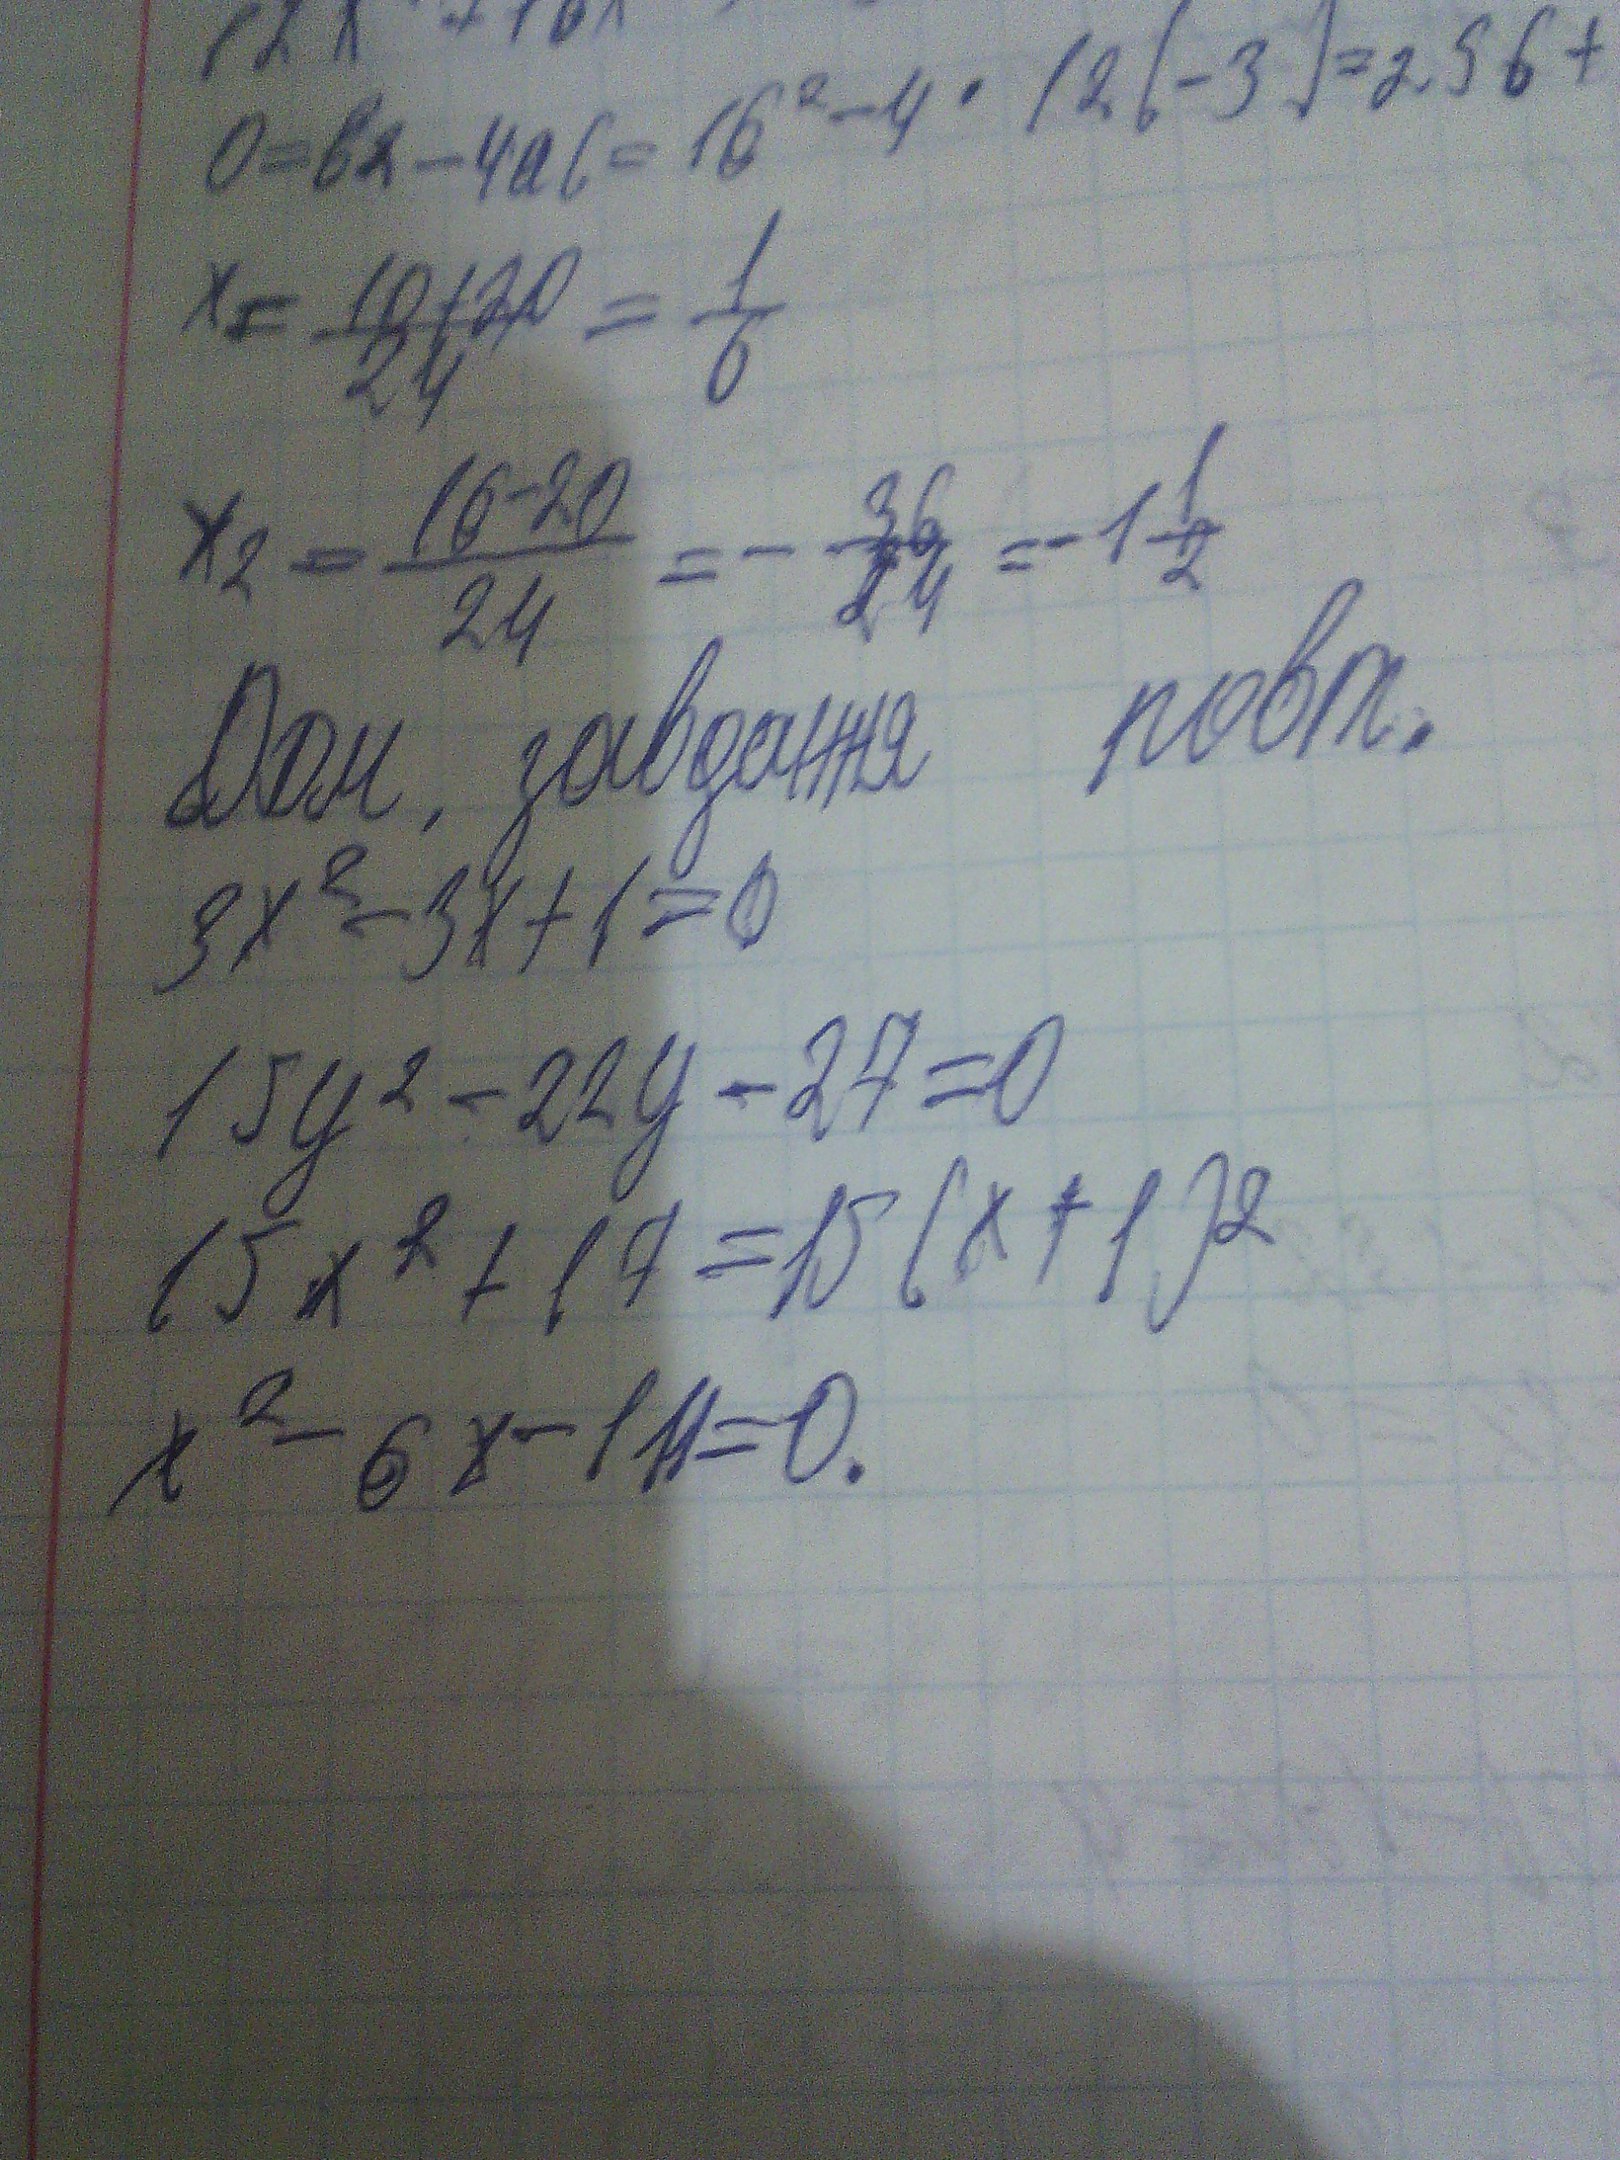 12x² + 16x
D=в2-4ac=16²-4·12(-3)=256+
x₁=16+20/24=1/6
x2=16-20/24=-36/24=-1 1/2
Дом. завдання повт.
3x²-3x+1=0
15y²-22y-27=0
15x²+17=15(x+1)2
x²-6x-14=0.